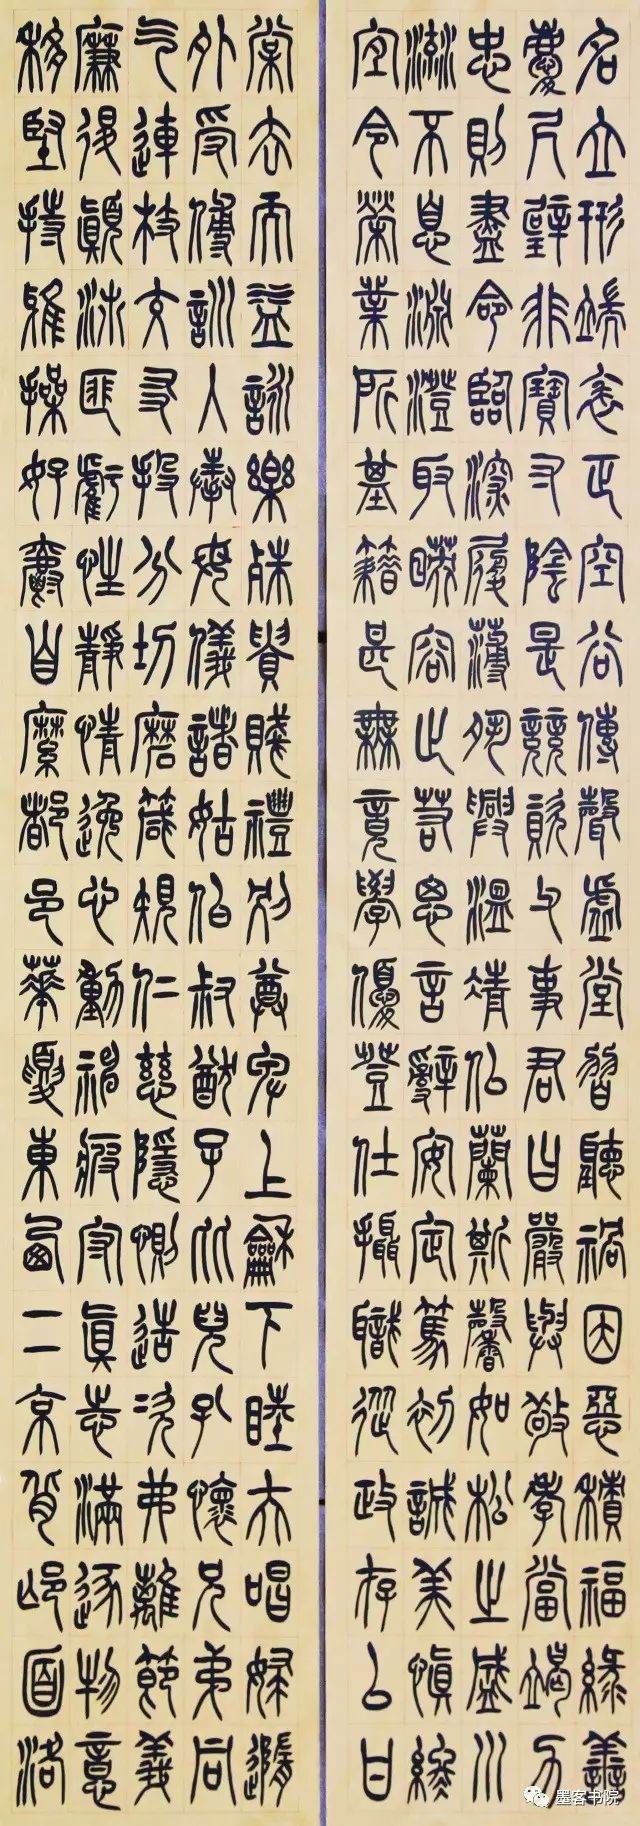 名立形端表正空谷傳聲虛堂習聽禍因惡積福緣善
慶尺璧非寶寸陰是競資父事君曰嚴與敬孝當竭力
忠則盡命臨深履薄夙興溫凊似蘭斯馨如松之盛川
流不息淵澄取映容止若思言辭安定篤初誠美慎終
宜令榮業所基籍甚無竟學優登仕攝職從政存以甘
棠去而益詠樂殊貴賤禮別尊卑上龢下睦夫唱婦隨
外受傅訓入奉母儀諸姑伯叔猶子比兒孔懷兄弟同
气連枝交友投分切磨箴規仁慈隱惻造次弗離節義
廉退顛沛匪虧性靜情逸心動神疲守真志滿逐物意
移堅持雅操好爵自縻都邑華夏東西二京背邙面洛
墨客书院